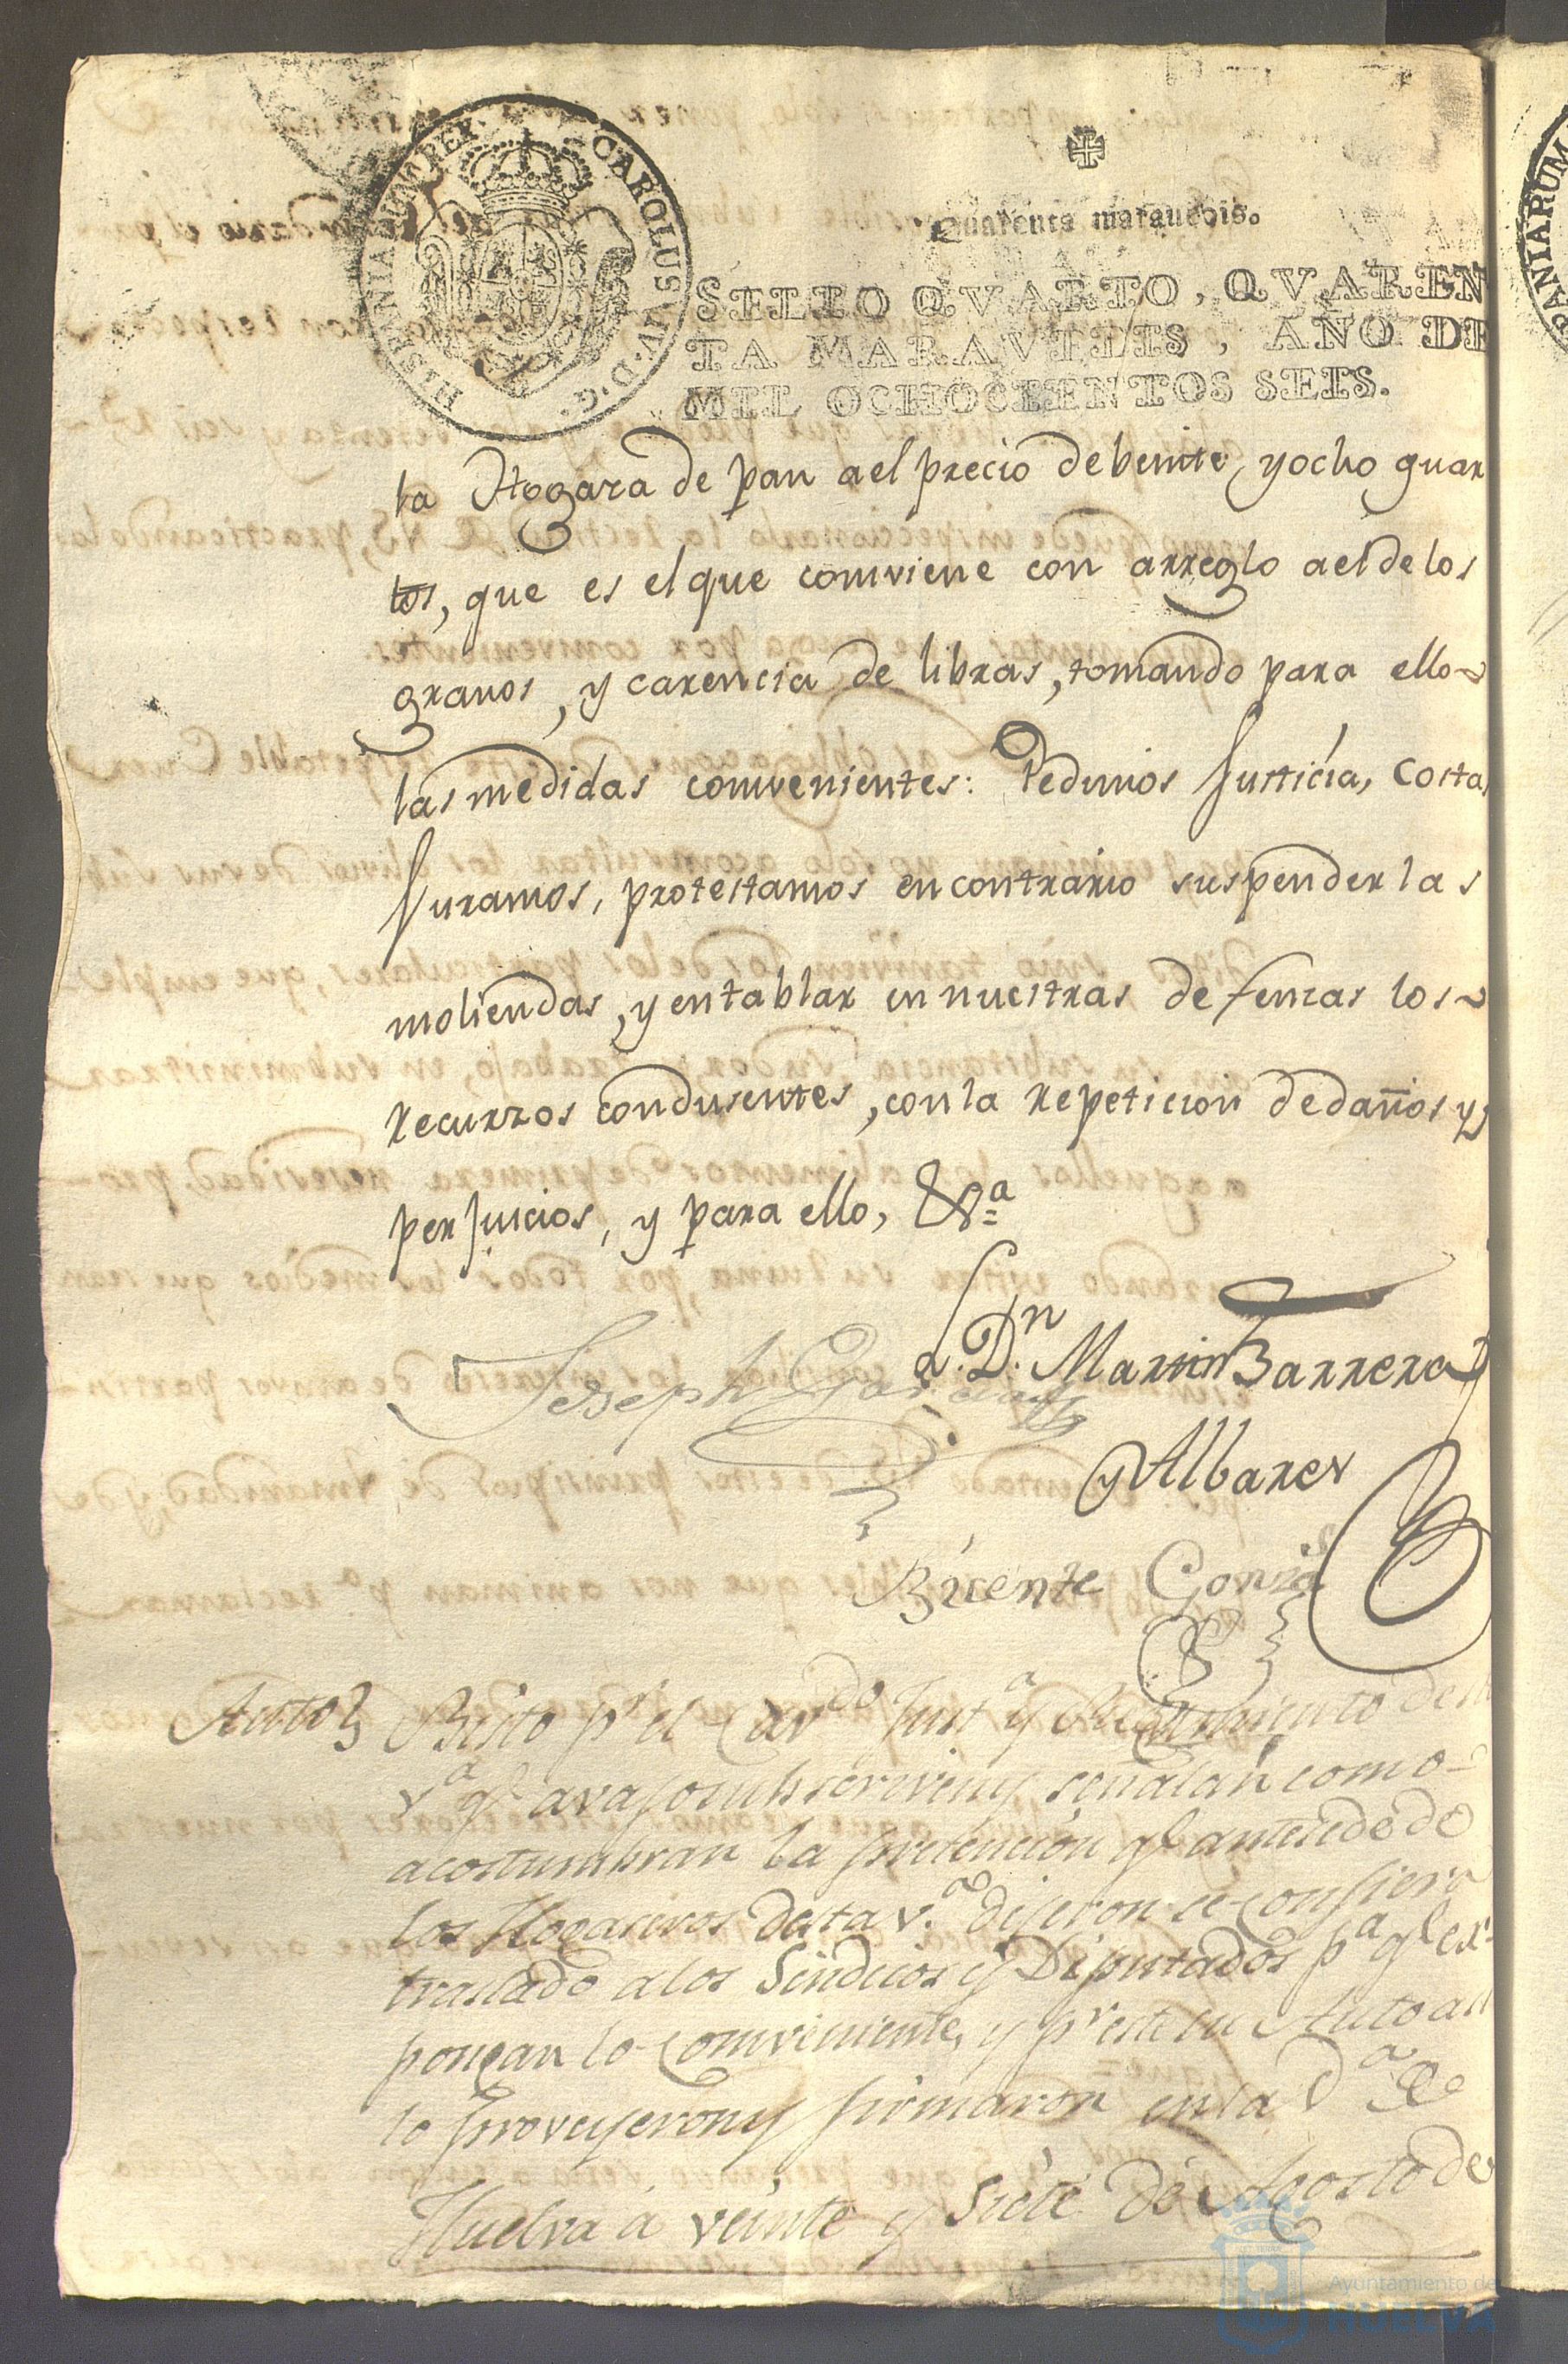 HISPANIARUM REX. CAROLUS IV. D. G.
Quarenta marauedis.
SELLO QVARTO, QVAREN
TA MARAVEDIS, AÑO DE
MIL OCHOCIENTOS SEIS.
la Hogaza de pan a el precio de beinte, y ocho quar
tos, que es el que comviene con arreglo a el de los
granos, y carencia de libras, tomando para ello
las medidas comvenientes: Pedimos Justicia, Costas
Juramos, protestamos en contrario suspender las
moliendas, y entablar en nuestras defensas los
recurzos condusentes, con la repeticion de daños y
perjuicios, y para ello, &ª
L. Dn. Martin Barrera
Joseph Garcia
y Albarez
Bicente Gonzz
Auto Bisto pr el Cavdo Justa y Regimiento de
va qe avajo subscriven y señalan como
acostumbran la pretencion qe antesede de
los Hogaseros desta va dijeron se confiera
traslado a los Sindicos y Diputados pa qe ex
pongan lo comveniente, y pr este su Auto asi
lo proveyeron y firmaron en la Va de
Huelva a veinte y siete de Agosto de
Ayuntamiento de
HUELVA
ANIARUM